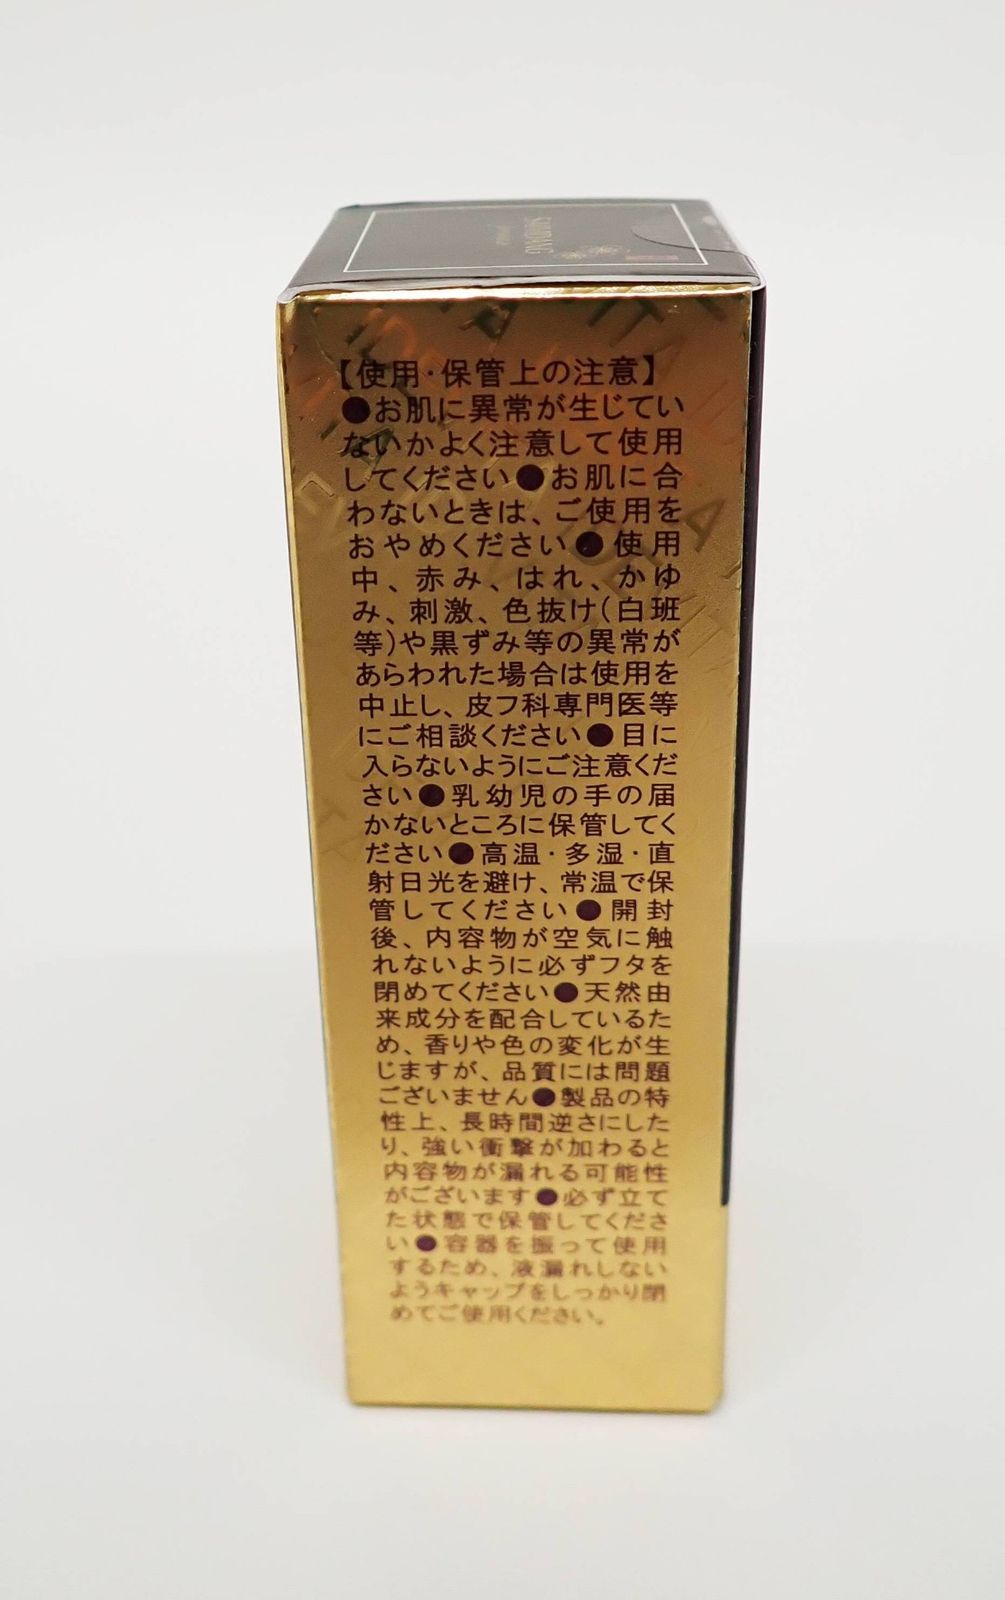 【使用・保管上の注意】
●お肌に異常が生じてい
ないかよく注意して使用
してください●お肌に合
わないときは、ご使用を
おやめください●使用
中、赤み、はれ、かゆ
み、刺激、色抜け(白班
等)や黒ずみ等の異常が
あらわれた場合は使用を
中止し、皮フ科専門医等
にご相談ください●目に
入らないようにご注意くだ
さい●乳幼児の手の届
かないところに保管してく
ださい●高温・多湿・直
射日光を避け、常温で保
管してください●開封
後、内容物が空気に触
れないように必ずフタを
閉めてください●天然由
来成分を配合しているた
め、香りや色の変化が生
じますが、品質には問題
ございません●製品の特
性上、長時間逆さにした
り、強い衝撃が加わると
内容物が漏れる可能性
がございます●必ず立て
た状態で保管してくださ
い●容器を振って使用
するため、液漏れしない
ようキャップをしっかり閉
めてご使用ください。